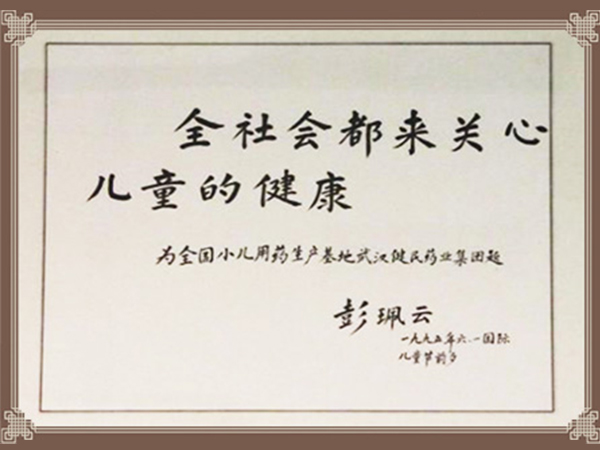 全社会都来关心
儿童的健康
为全国小儿用药生产基地武汉健民药业集团题
彭珮云
一九九五年六.一国际
儿童节前夕